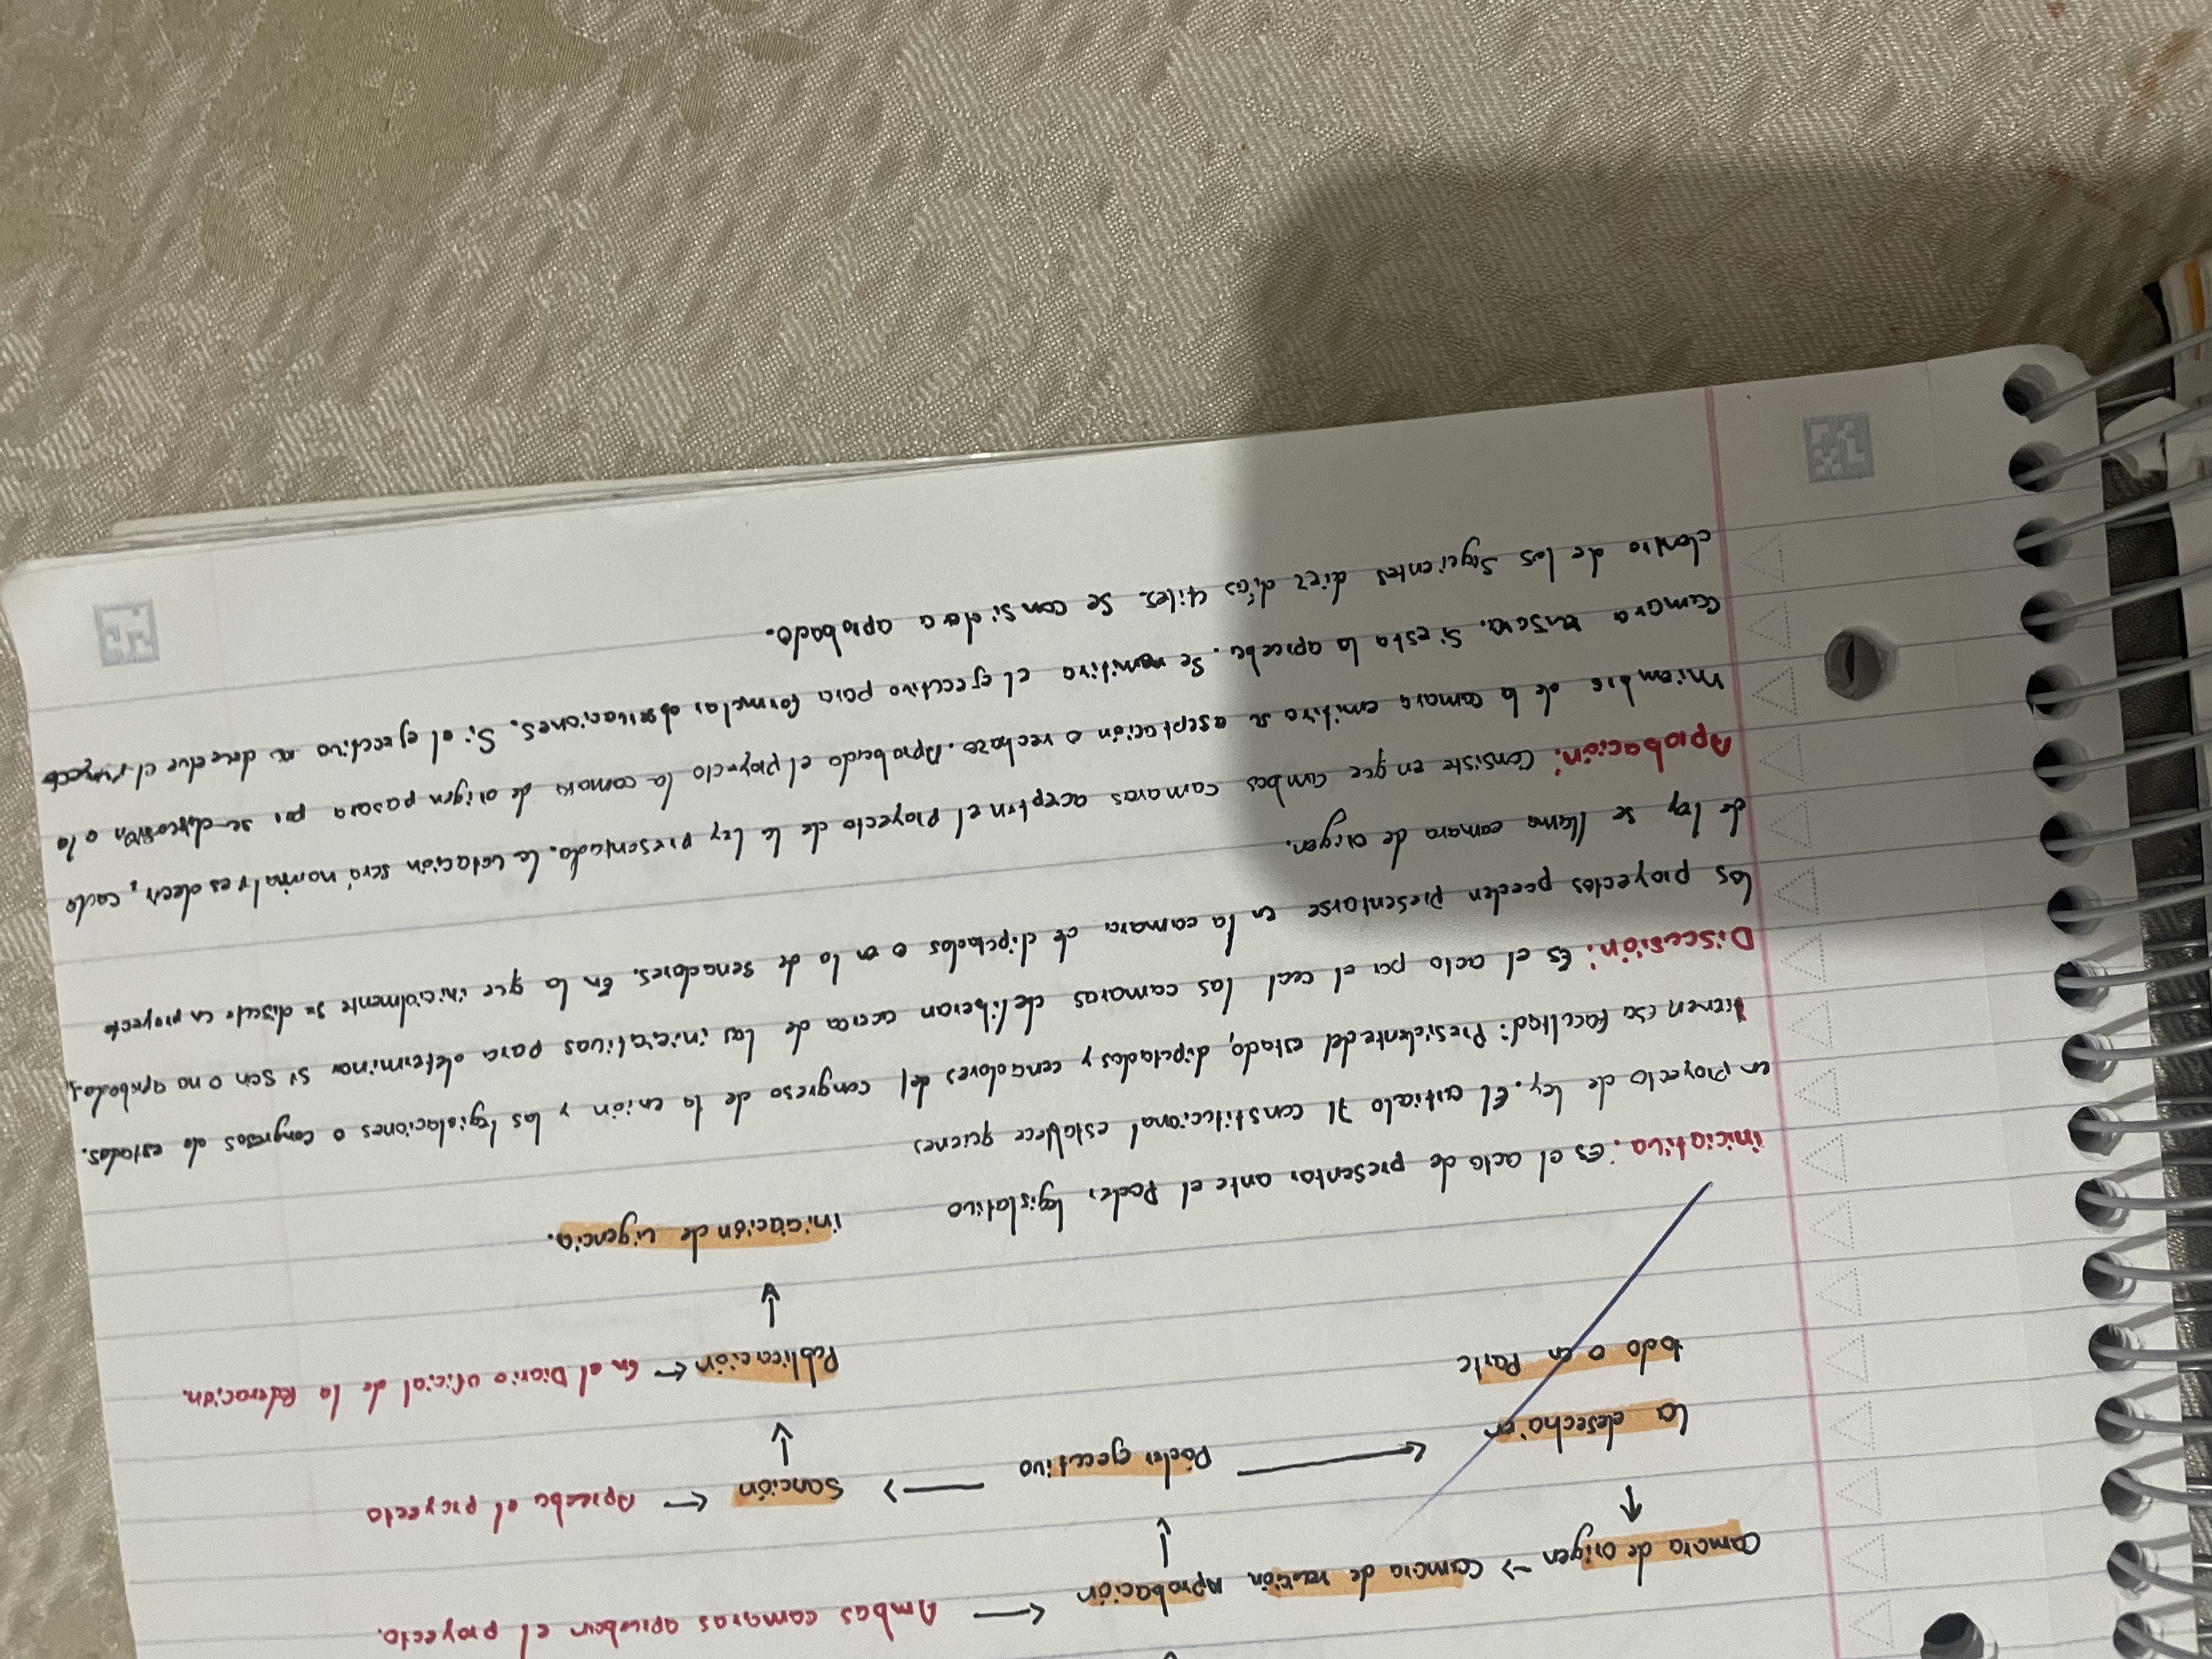 Ambas camaras aprueban el proyecto.
Camara de origen → Camara de Aprobación
La desechan Poder ejecutivo Sanción Aprueba el proyecto
todo o en Parte Publicación En el Diario oficial de la Federación.
iniciación de vigencia.
iniciativa. Es el acto de presentar ante el Poder legislativo
un proyecto de ley. El articulo 71 constitucional establece quienes
tienen esa facultad: Presidente del estado, diputados y cenadores del congreso de la unión y las legislaciones o congresos de estados.
Discusión: Es el acto por el cual las camaras deliberan acerca de las iniciativas para determinar si son o no aprobadas,
los proyectos pueden presentarse en la camara de diputados o en la de senadores. En la que inicialmente se discute un proyecto
de ley se llama camara de origen.
Aprobación: Consiste en que ambas camaras acepten el proyecto de la ley presentada. La votación será nominal y es decir, cada
miembro de la camara emitira su aseptación o rechazo. Aprobado el proyecto la camara de origen pasara por su discusión a la
Camara Si esta la aprueba. Se remitira el ejecutivo para formular observaciones. Si el ejecutivo no devuelve el proyecto
dentro de los siguientes diez días utiles. Se considera aprobado.